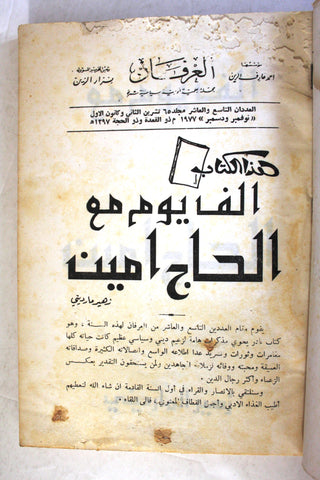 منشئها
احمد عارف الزين
العرفان
نزار الزين
مجلة علمية ادبية سياسية شهرية
العددان التاسع والعاشر مجلد ٦٥ تشرين الثاني وكانون الاول
« نوفمبر وديسمبر » ١٩٧٧ م ذو القعدة وذو الحجة ١٣٩٧ هـ
هذا الكتاب
الف يوم مع
الحاج امين
زهير مارديني
يقوم مقام العددين التاسع والعاشر من العرفان لهذه السنة ، وهو
كتاب نادر يحوي مذكرات هامة لزعيم ديني وسياسي عظيم كانت حياته كلها
مغامرات وثورات وتشريد عدا اطلاعه الواسع واتصالاته الكثيرة وصداقاته
العميقة ومحبته ووفائه لزملائه المجاهدين ولمن يستحقون التقدير بعكس
الزعماء واكثر رجال الدين .
وسنلتقي بالانصار والقراء في أول السنة القادمة ان شاء الله لنعطيهم
أطيب الغذاء الادبي وأجنى القطاف المعنوي . فالى اللقاء .